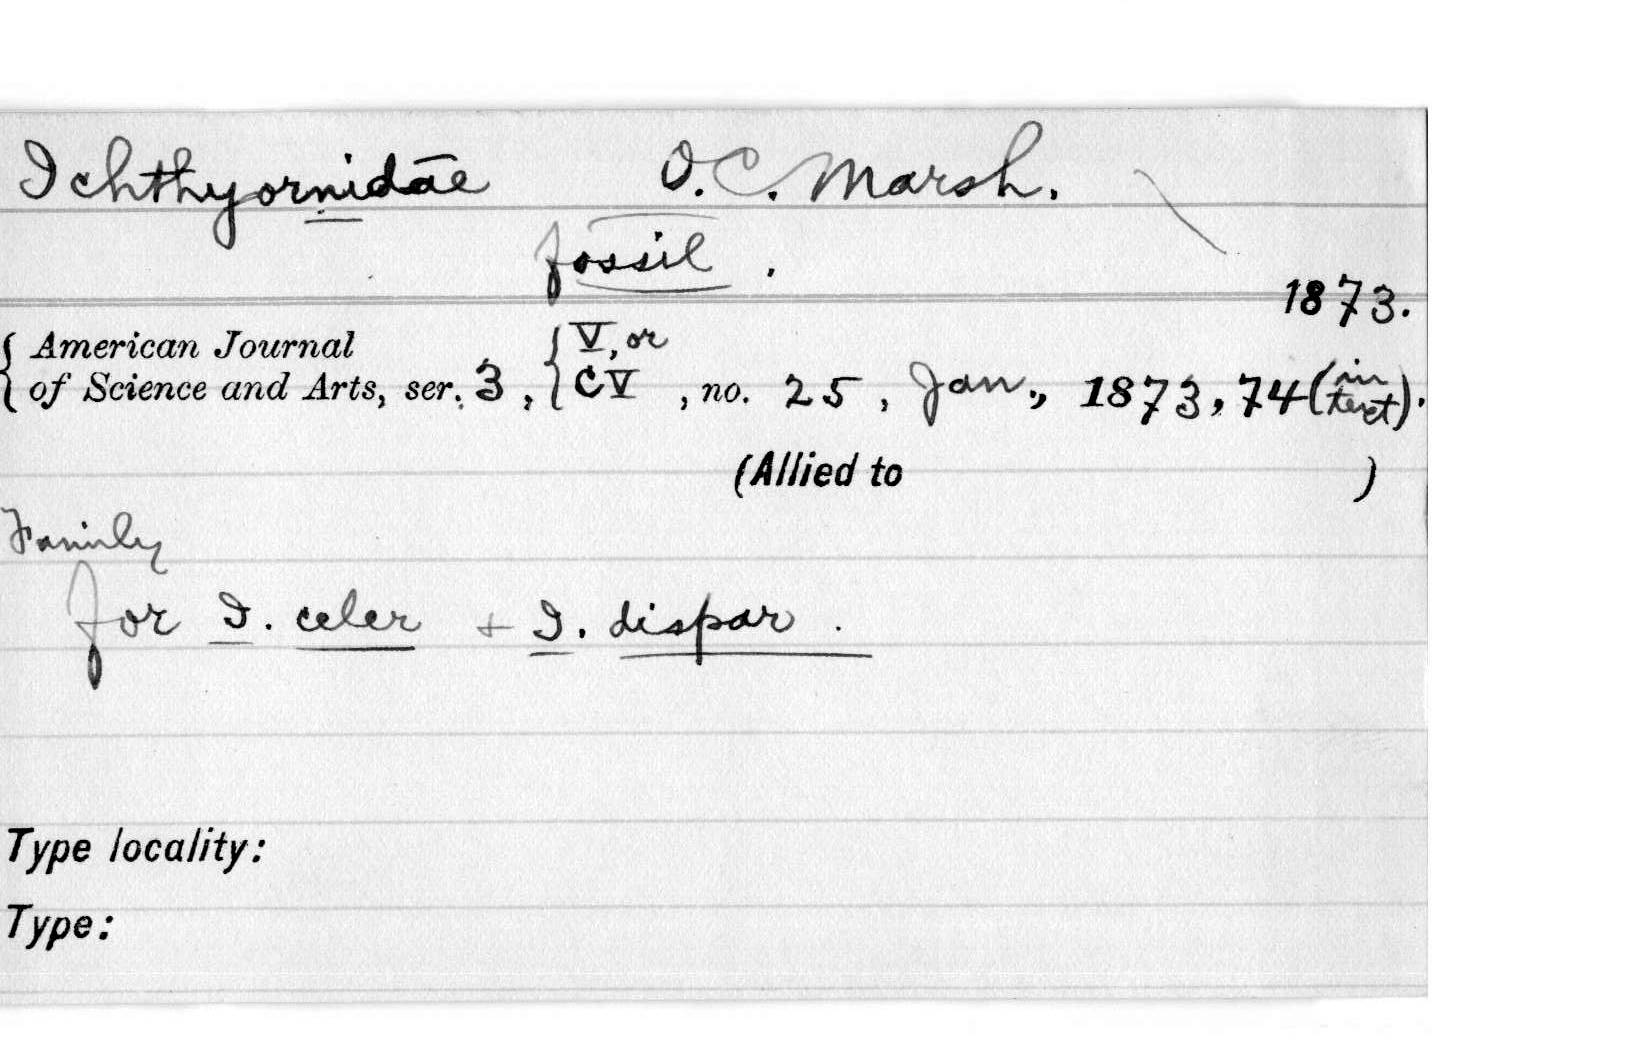 Ichthyornidae O.C. Marsh.
fossil.
1873.
{ American Journal { V, or
{ of Science and Arts, ser. 3, { CV, no. 25, Jan., 1873, 74 (in text).
(Allied to )
Family
for I. celer + I. dispar.
Type locality:
Type: